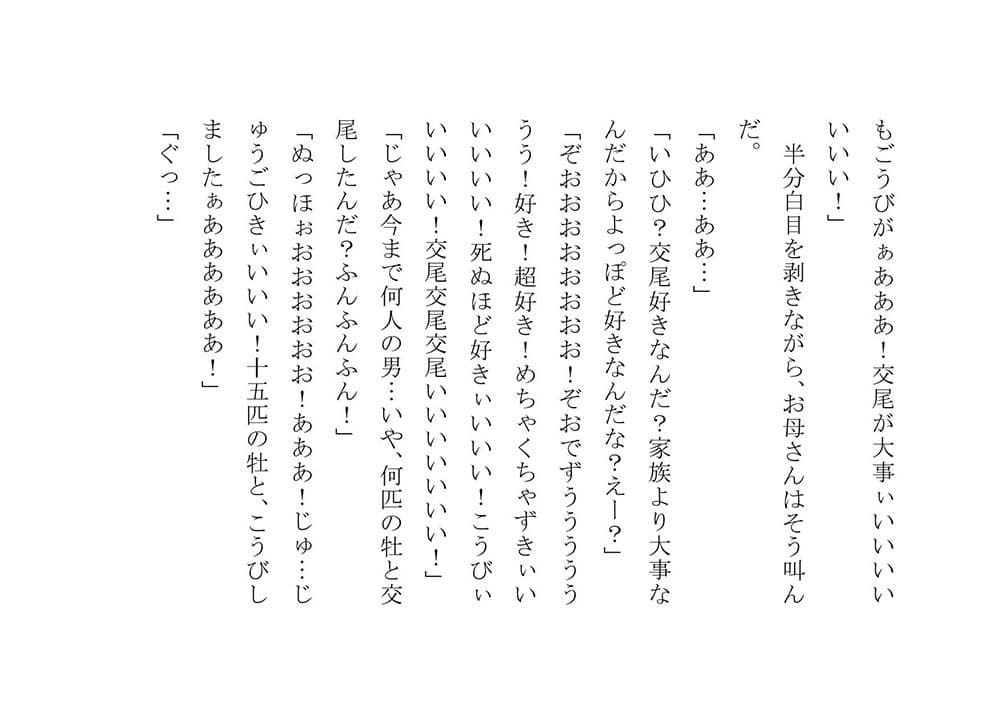 もごうびがぁあああ！交尾が大事ぃいいいい
いいい！」
　半分白目を剥きながら、お母さんはそう叫ん
だ。
「ああ…ああ…」
「いひひ？交尾好きなんだ？家族より大事な
んだからよっぽど好きなんだな？えー？」
「ぞおおおおおおおお！ぞおでずううううう
うう！好き！超好き！めちゃくちゃずきぃい
いいいい！死ぬほど好きぃいいい！こうびぃ
いいいい！交尾交尾交尾いいいいいいい！」
「じゃあ今まで何人の男…いや、何匹の牡と交
尾したんだ？ふんふんふん！」
「ぬっほぉおおおおおお！あああ！じゅ…じ
ゅうごひきぃいいい！十五匹の牡と、こうびし
ましたぁああああああ！」
「ぐっ…」